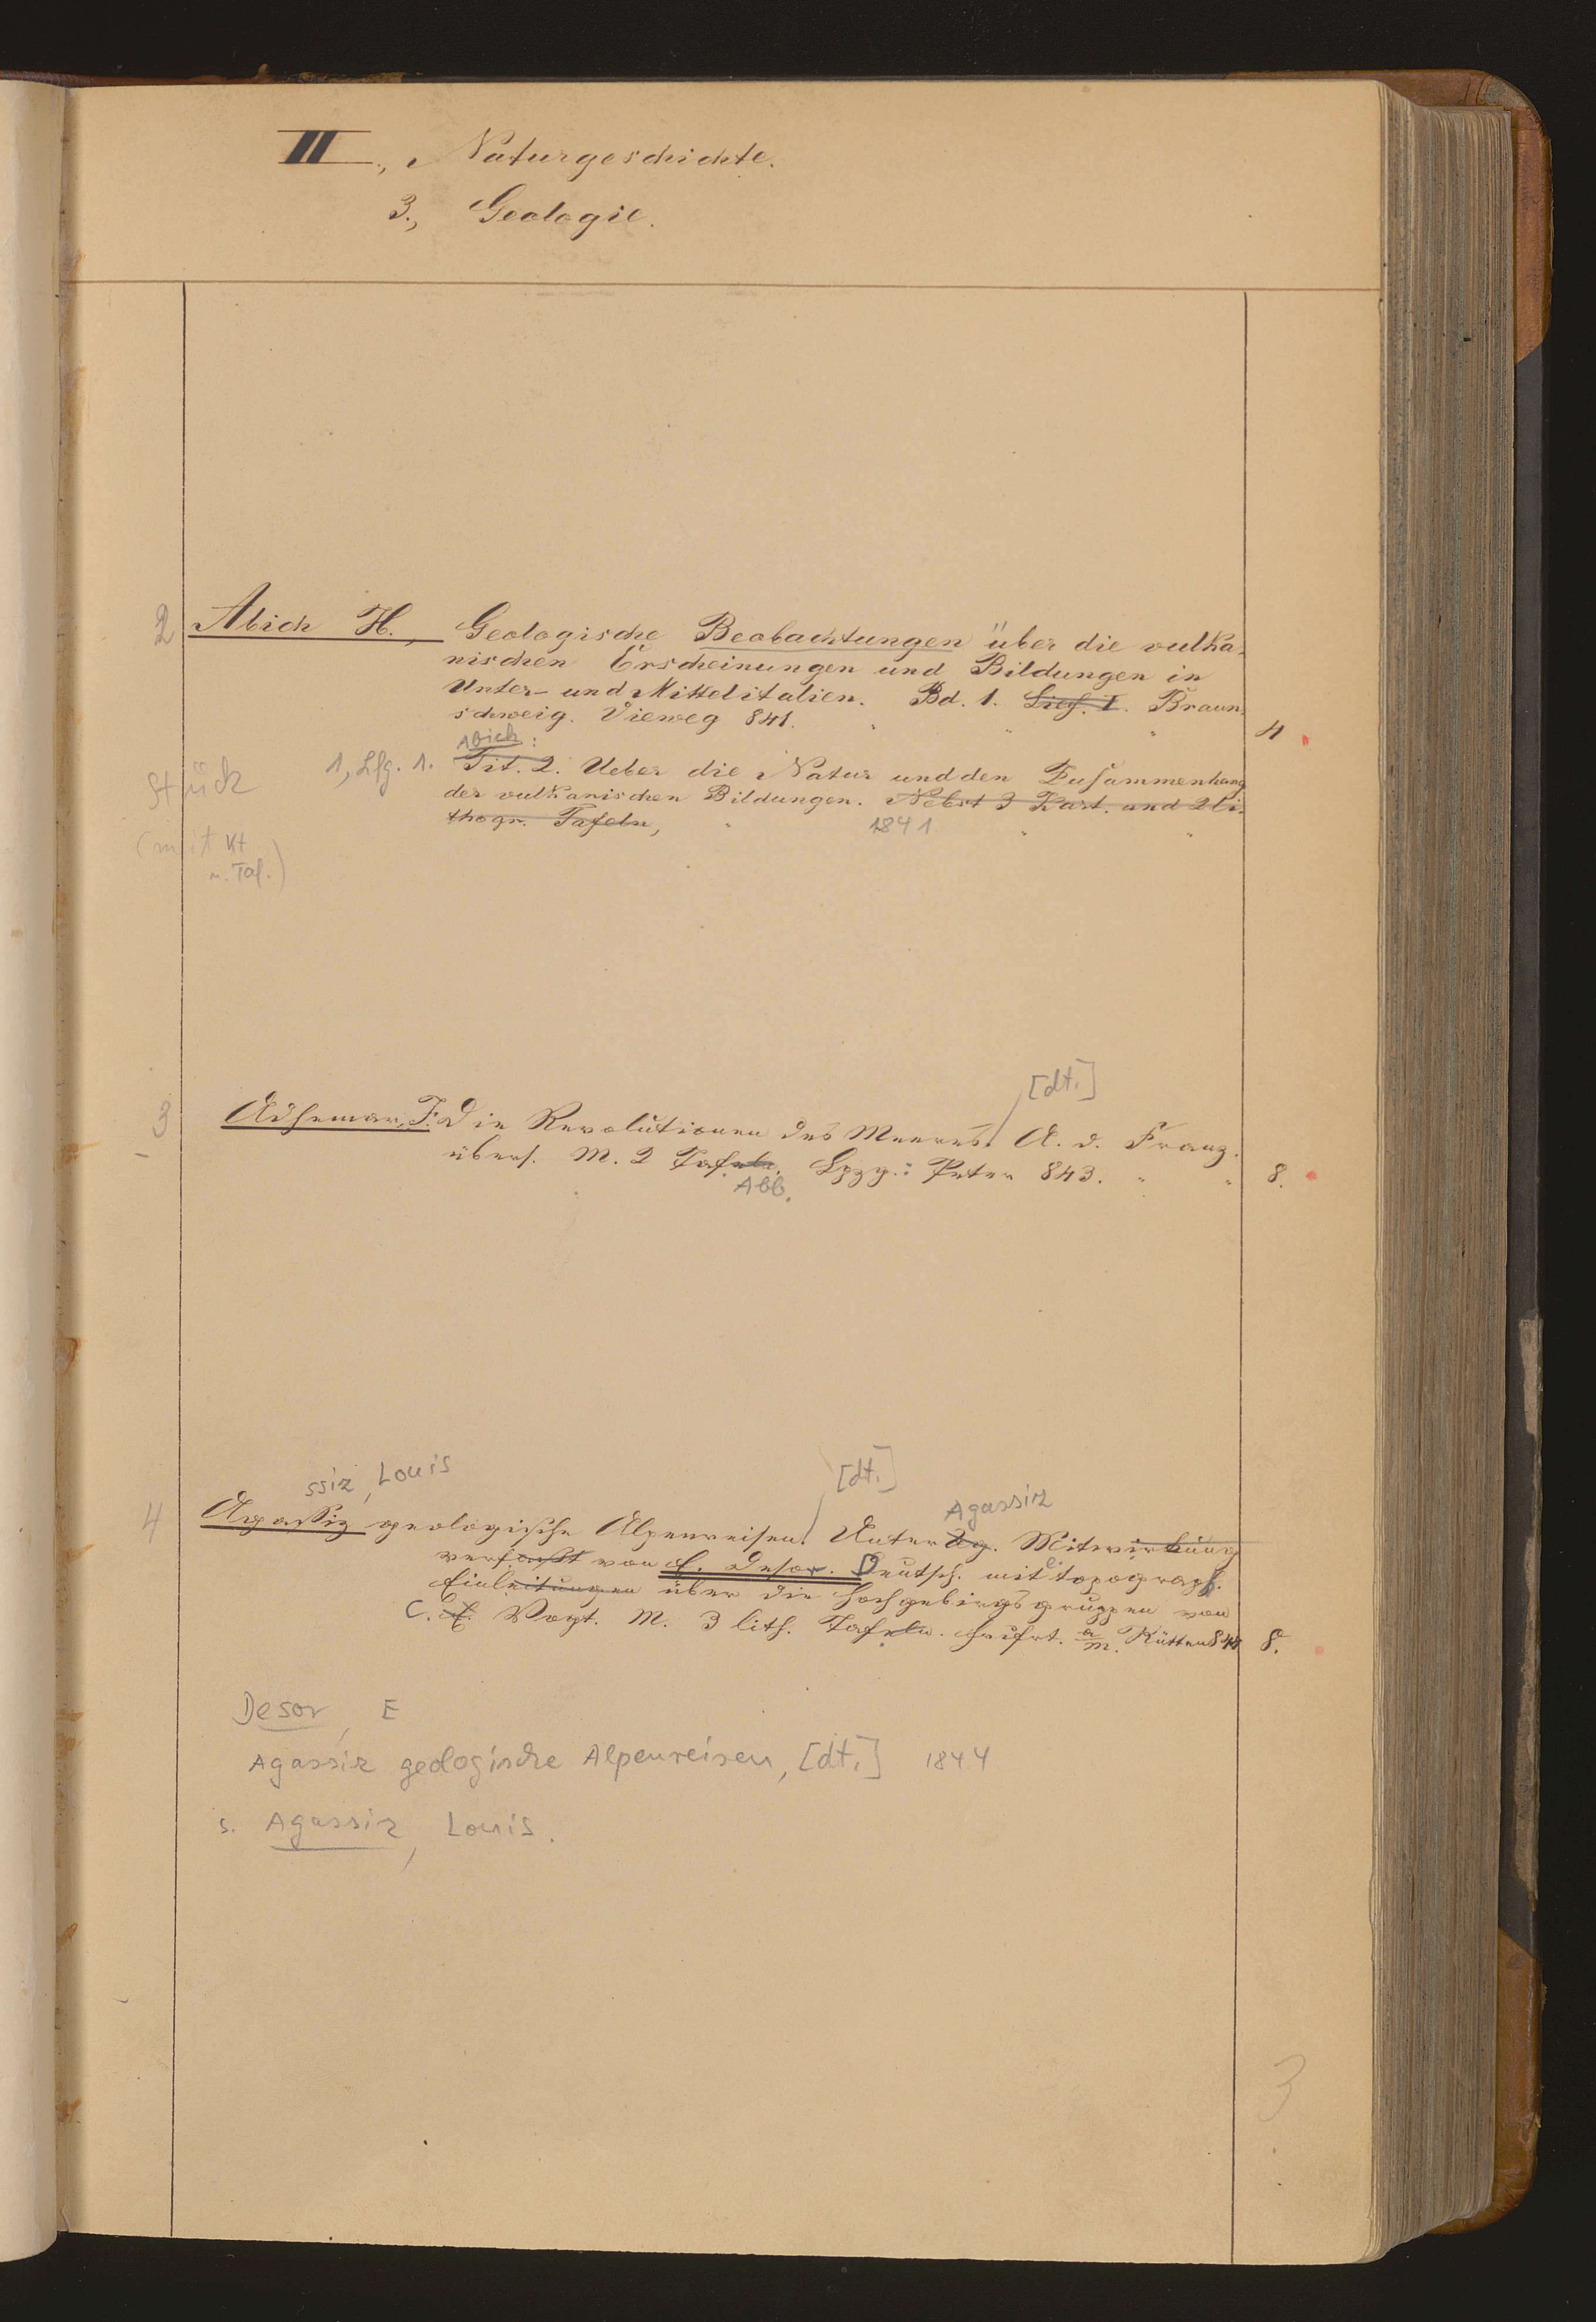 III., Naturgeschichte.
3., Geologie.
2 Abich H., Geologische Beobachtungen über die vulka-
nischen Erscheinungen und Bildungen in
Unter- und Mittelitalien. Bd. 1. Lief. I. Braun-
schweig. Vieweg 841. " " " 4
Abich:
Stück 1, Lfg. 1. Tit. 2. Ueber die Natur und den Zusammenhang
der vulkanischen Bildungen. Nebst 3 Kart. und 2 li-
thogr. Tafeln, " 1841 " "
(mit Kt
u. Taf.)
[dt.]
3 Adhemar, F. Die Revolutionen des Meeres. A. d. Franz.
übers. M. 2 Tafeln. Lpzg.: Peter 843. " " 8.
Abb.
ssiz, Louis [dt.] Agassiz
4 Agassiz geologische Alpenreisen. Unter Ag. Mitwirkung
verfasst von E. Desor. Deutsch. mit e. topograph.
Einleitungen über die Hochgebirgsgruppen von
C. Vogt. M. 3 lith. Tafeln. Frkfrt. a/m. Rütten 844 8.
Desor, E
Agassiz geologische Alpenreisen, [dt.] 1844
s. Agassiz, Louis.
3